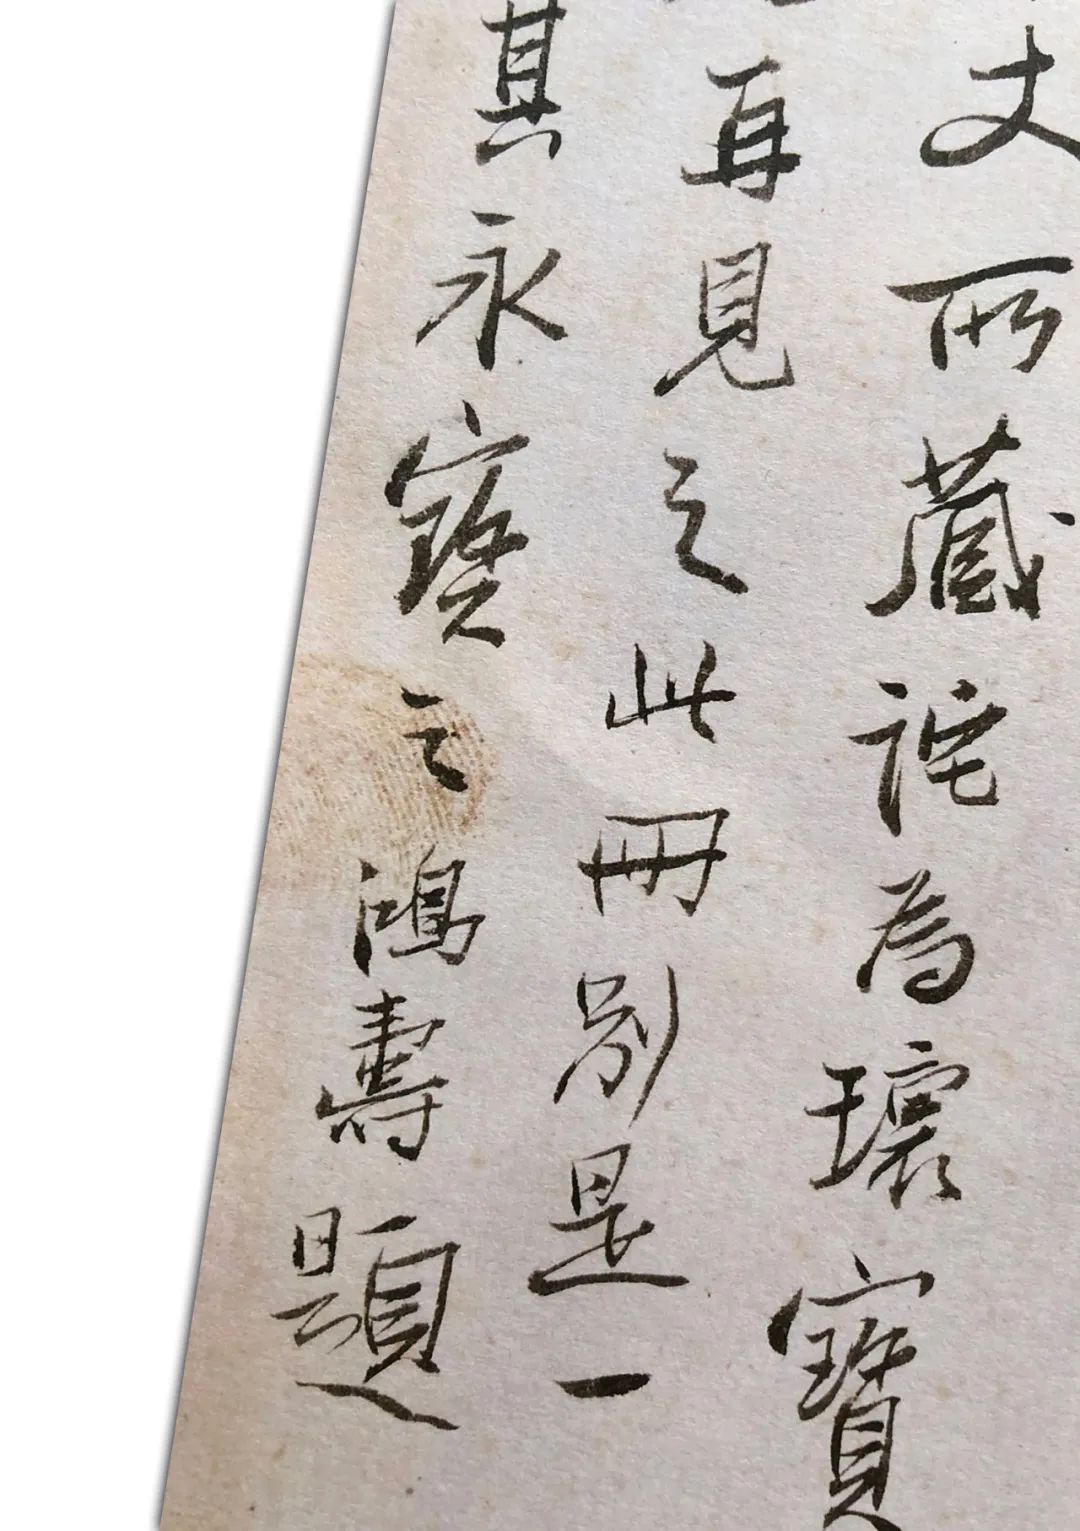 丈所藏詫為瓌寶
再見之此冊別是一
其永寶之鴻壽題